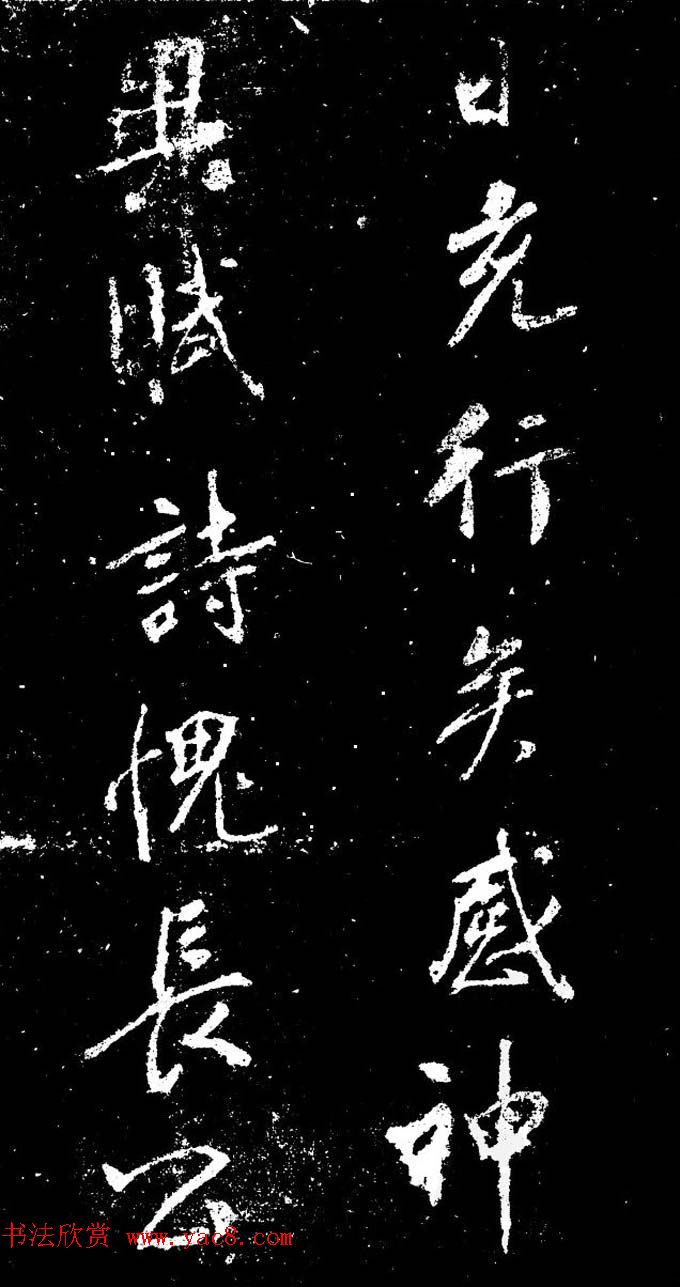 日行矣感神
異賦詩愧長公
书法欣赏 www.yac8.com